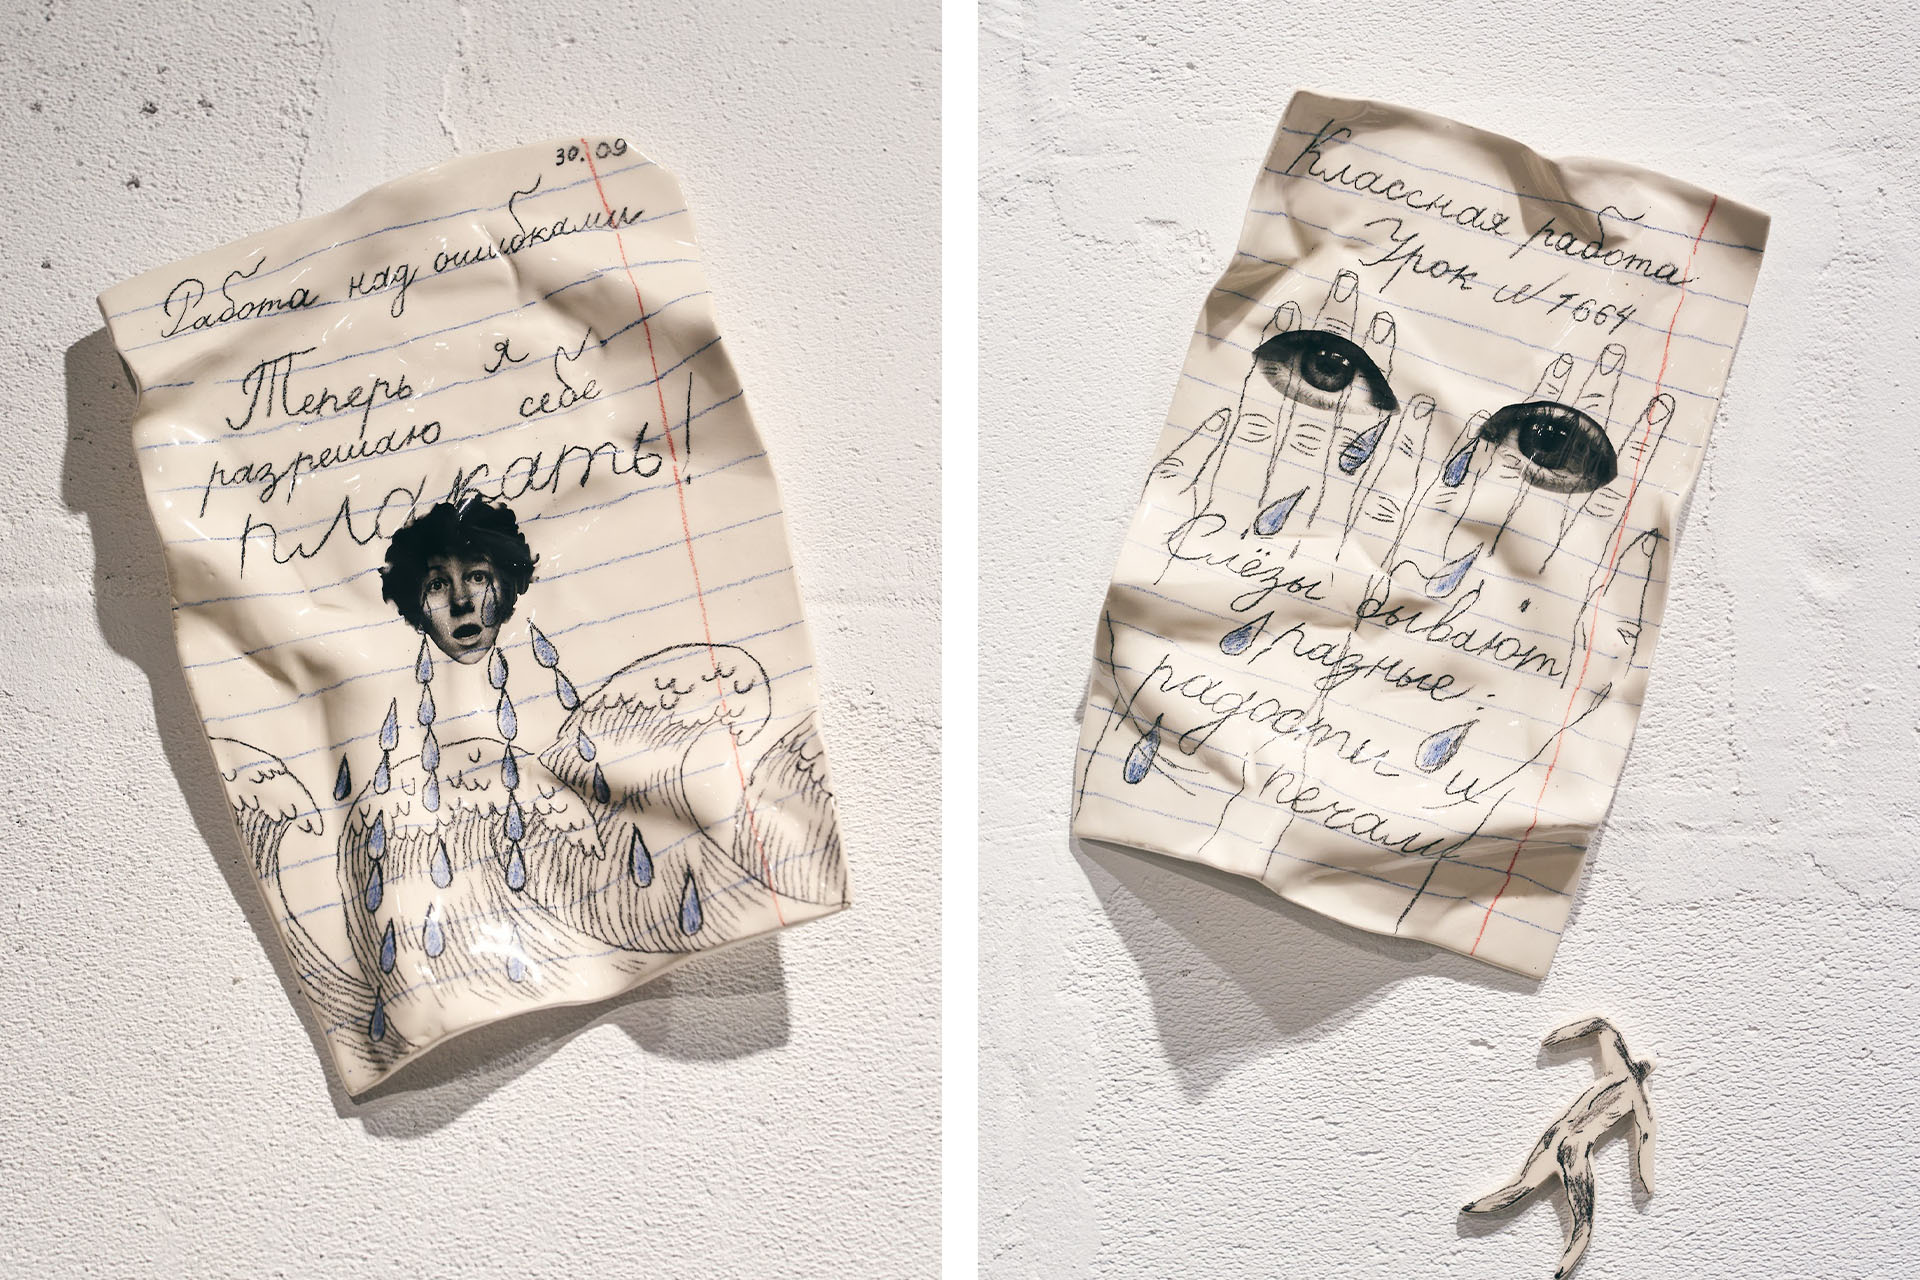 30.09
Работа над ошибками
Теперь я
разрешаю себе
плакать!
Классная работа
Урок № 1664
Слёзы бывают
разные:
радости и
печали